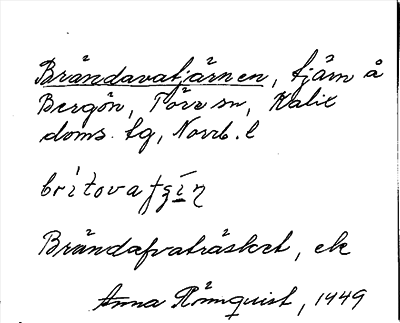 Brändavatjärnen, tjärn å
Bergön, Töre sn, Kalix
doms. tg, Norrb. l
Brändafvaträsket, ek
Anna Rönnquist, 1949